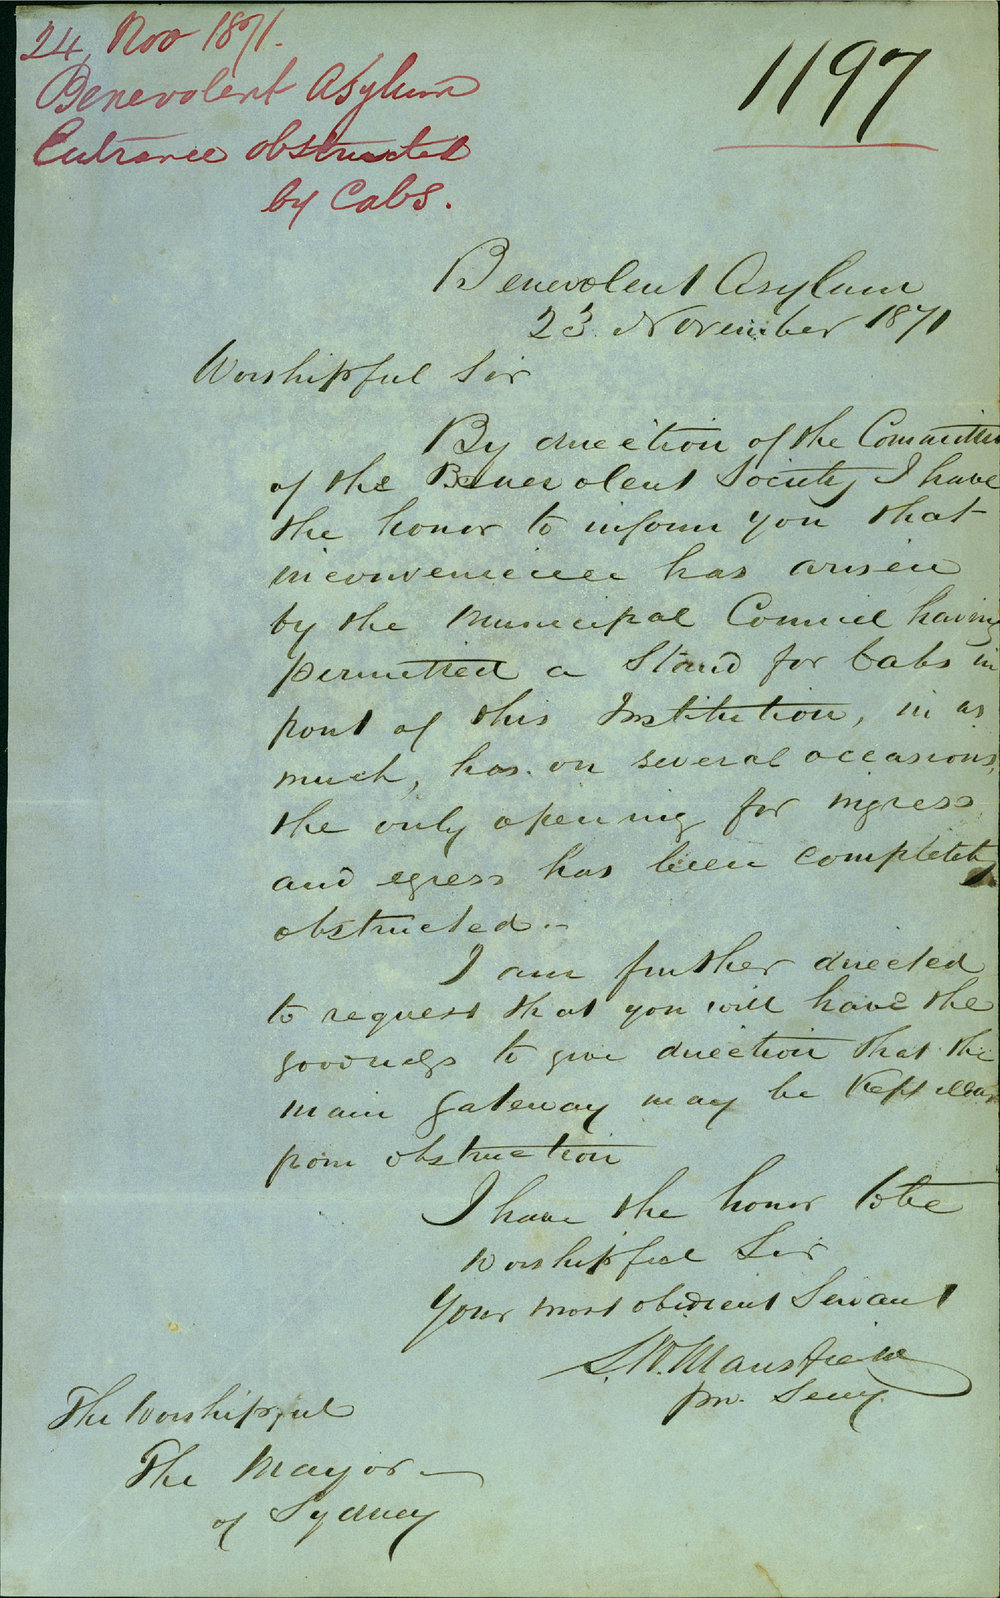 24 Nov 1871.
Benevolent Asylum
Entrance obstructed
by Cabs.
1197
Benevolent Asylum
23 November 1871
Worshipful Sir
By direction of the Committee
of the Benevolent Society I have
the honor to inform you that
inconvenience has arisen
by the Municipal Council having
permitted a Stand for Cabs in
front of this Institution, in as
much, has on several occasions,
the only opening for ingress
and egress has been completely
obstructed..
I am further directed
to request that you will have the
goodness to give direction that the
main gateway may be kept clear
from obstruction
I have the honor to be
Worshipful Sir
Your most obedient Servant
S.W. Mansfield
Secy.
The Worshipful
The Mayor
of Sydney